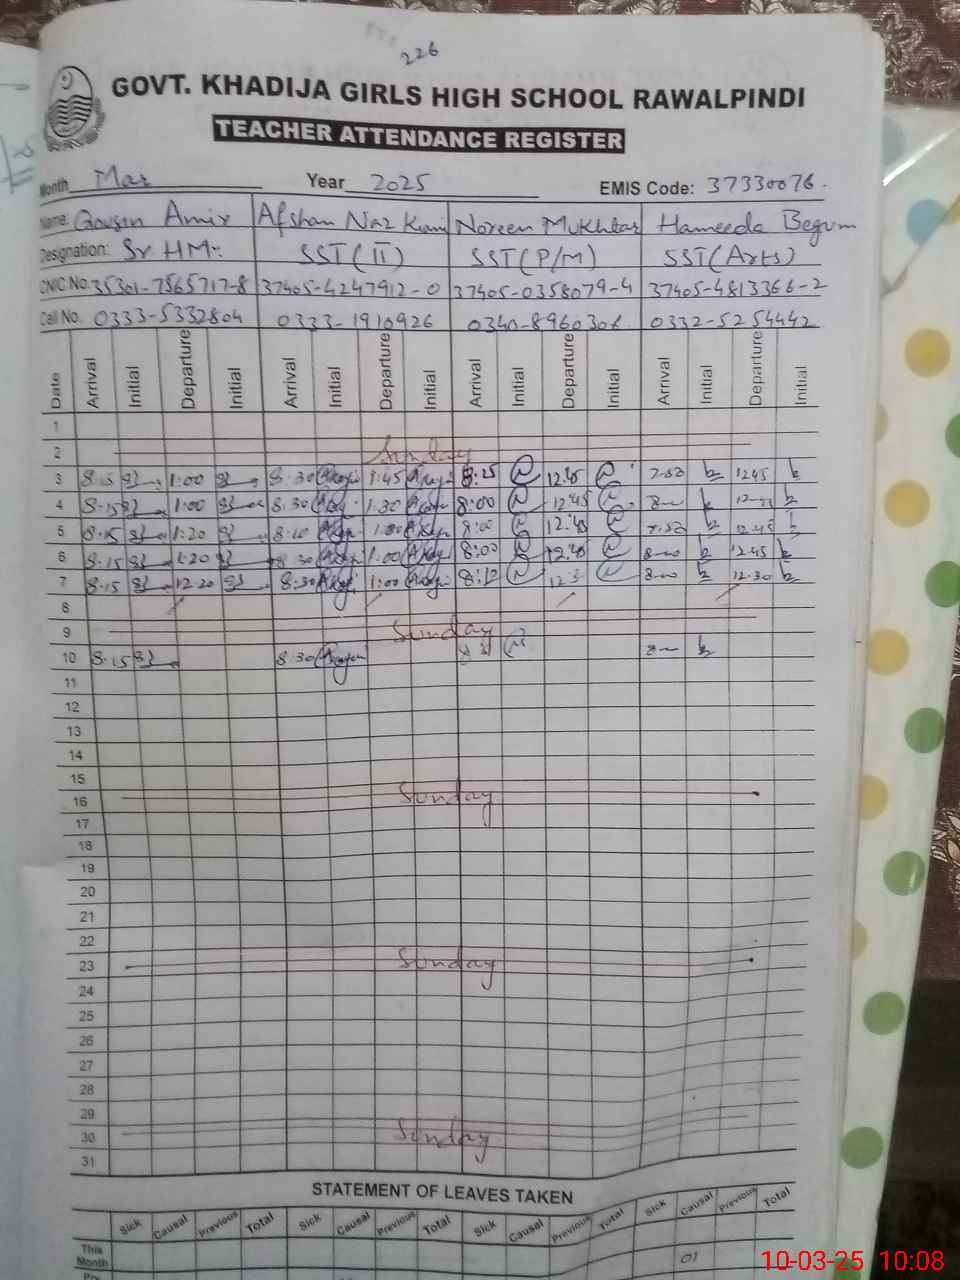 226
GOVT. KHADIJA GIRLS HIGH SCHOOL RAWALPINDI
TEACHER ATTENDANCE REGISTER
Month Mar Year 2025 EMIS Code: 37330076.
Name: Amir Afshan Naz Noreen Mukhtar Hameeda Begum
Designation: Sr. HM. SST(II) SST(P/M) SST(Arts)
CNIC No. 35301-7565717-8 37405-4247912-0 37405-0358079-4 37405-4813366-2
Cell No. 0333-5332804 0333-1910926 0340-8960306 0332-5254442
Date Arrival Initial Departure Initial Arrival Initial Departure Initial Arrival Initial Departure Initial Arrival Initial Departure Initial
1
2 Sunday
3 8.15 1:00 8.30 1:45 8:25 12.45 1245
4 8.15 1:00 8.30 1.30 8:00 12.45
5 8.15 1:20 8:00 12.45 12.45
6 8.15 1.20 8.30 1:00 8:00 12.45
7 8.15 12.20 8.30 1:00 8:12 8.00 12.30
8
9 Sunday
10 8.15 8.30
11
12
13
14
15
16 Sunday
17
18
19
20
21
22
23 Sunday
24
25
26
27
28
29
30 Sunday
31
STATEMENT OF LEAVES TAKEN
Sick Causal Previous Total Sick Causal Previous Total Sick Causal Previous Total Sick Causal Previous Total
This
Month 01
10-03-25 10:08